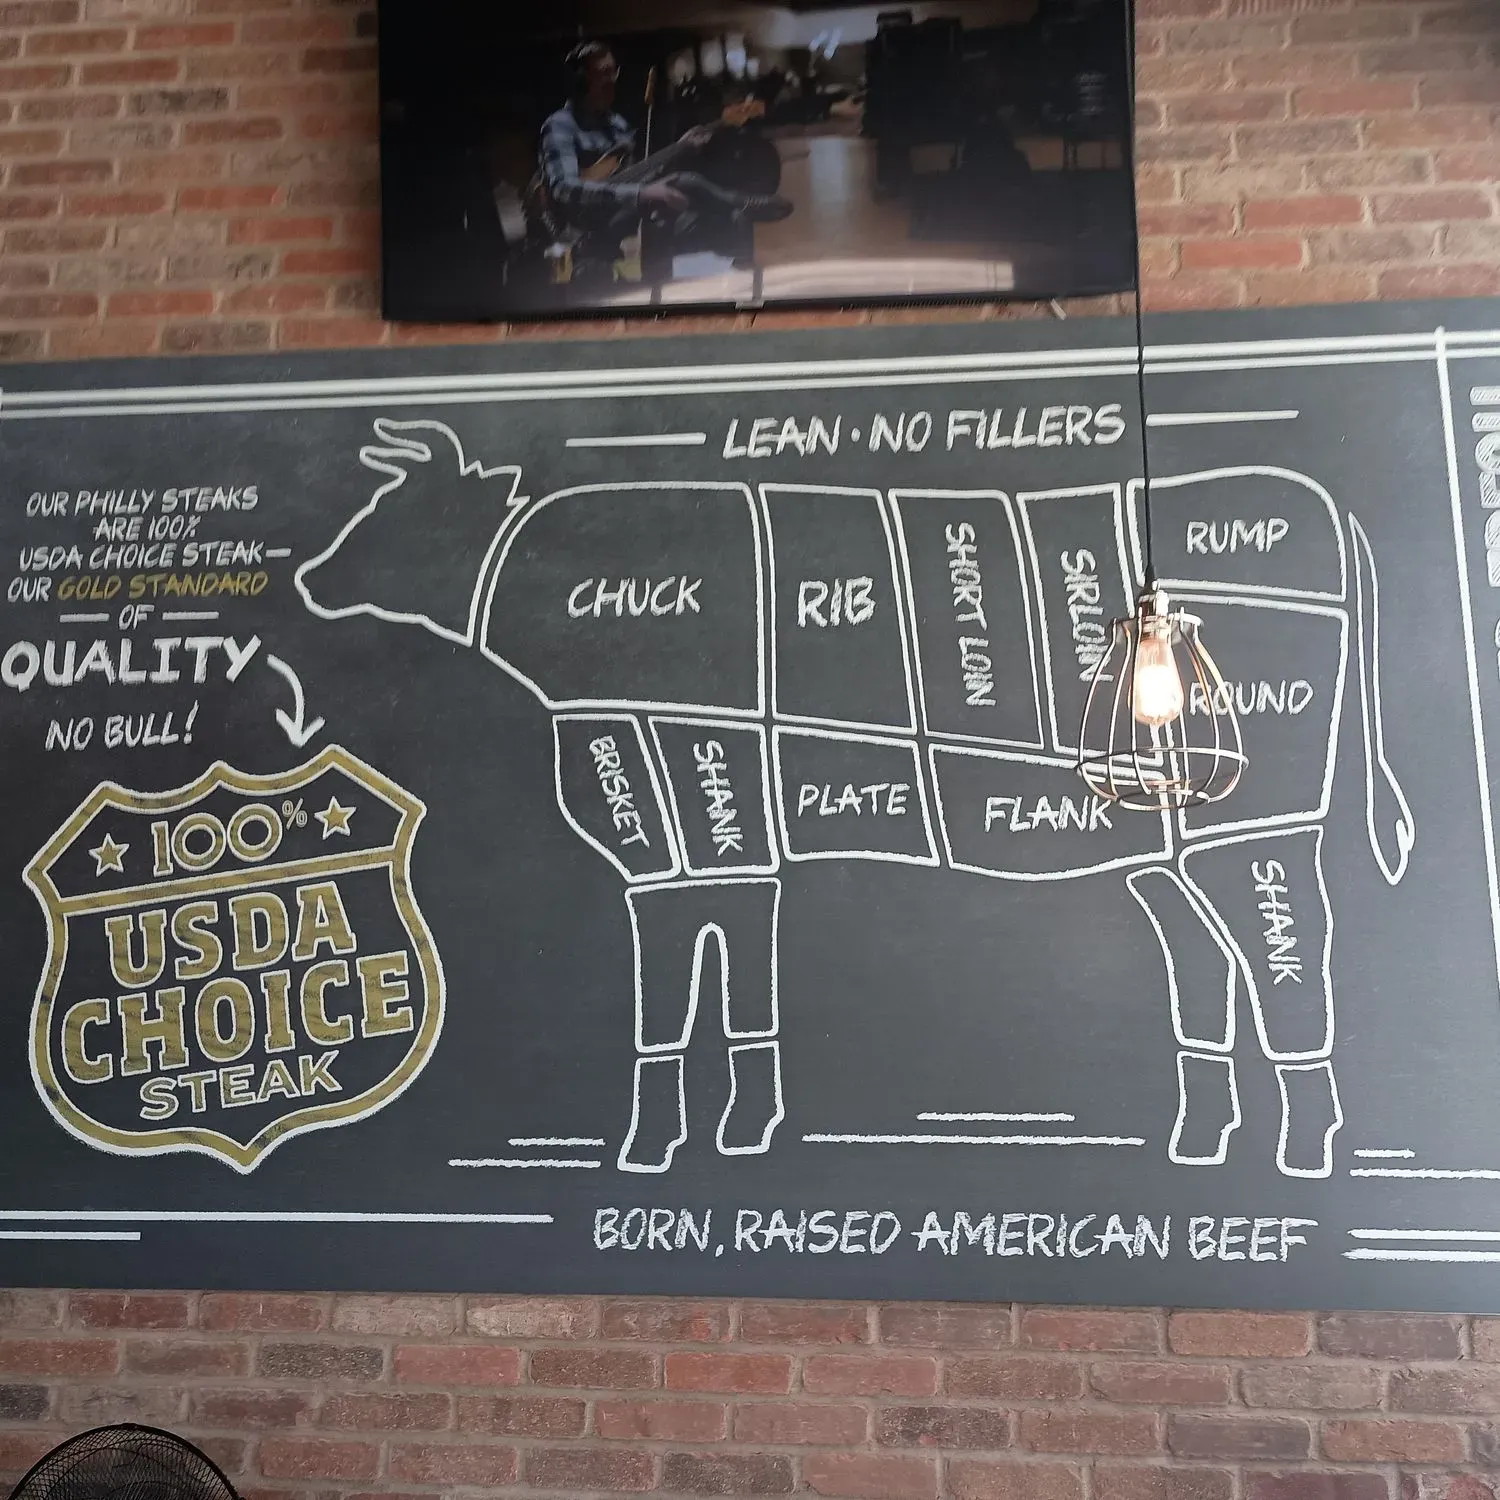 LEAN · NO FILLERS
OUR PHILLY STEAKS
ARE 100%
USDA CHOICE STEAK—
OUR GOLD STANDARD
— OF —
QUALITY
NO BULL!
100%
USDA
CHOICE
STEAK
CHUCK
RIB
SHORT LOIN
SIRLOIN
RUMP
ROUND
BRISKET
SHANK
PLATE
FLANK
SHANK
BORN, RAISED AMERICAN BEEF